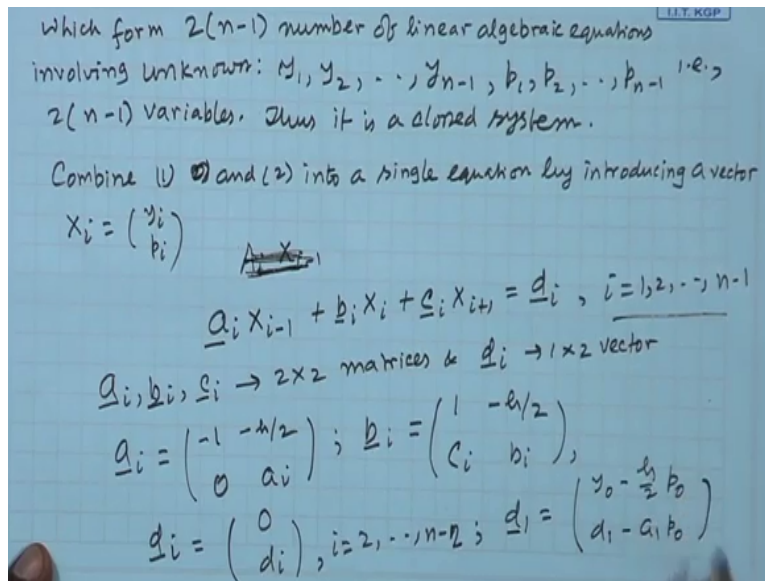 I.I.T. KGP
which form 2(n-1) number of linear algebraic equations
involving unknown: y₁, y₂, . . , yₙ₋₁, p₁, p₂, . . , pₙ₋₁ i.e.,
2(n-1) variables. Thus it is a closed system.
Combine (1) and (2) into a single equation by introducing a vector
Xᵢ = (yᵢ pᵢ)
aᵢ Xᵢ₋₁ + bᵢ Xᵢ + cᵢ Xᵢ₊₁ = dᵢ , i = 1, 2, . . , n-1
aᵢ, bᵢ, cᵢ → 2×2 matrices & dᵢ → 1×2 vector
aᵢ = (-1 -h/2; 0 aᵢ) ; bᵢ = (1 -h/2; cᵢ bᵢ),
dᵢ = (0; dᵢ), i = 2, . . , n-2 ; d₁ = (y₀ - h/2 p₀; d₁ - a₁ p₀)